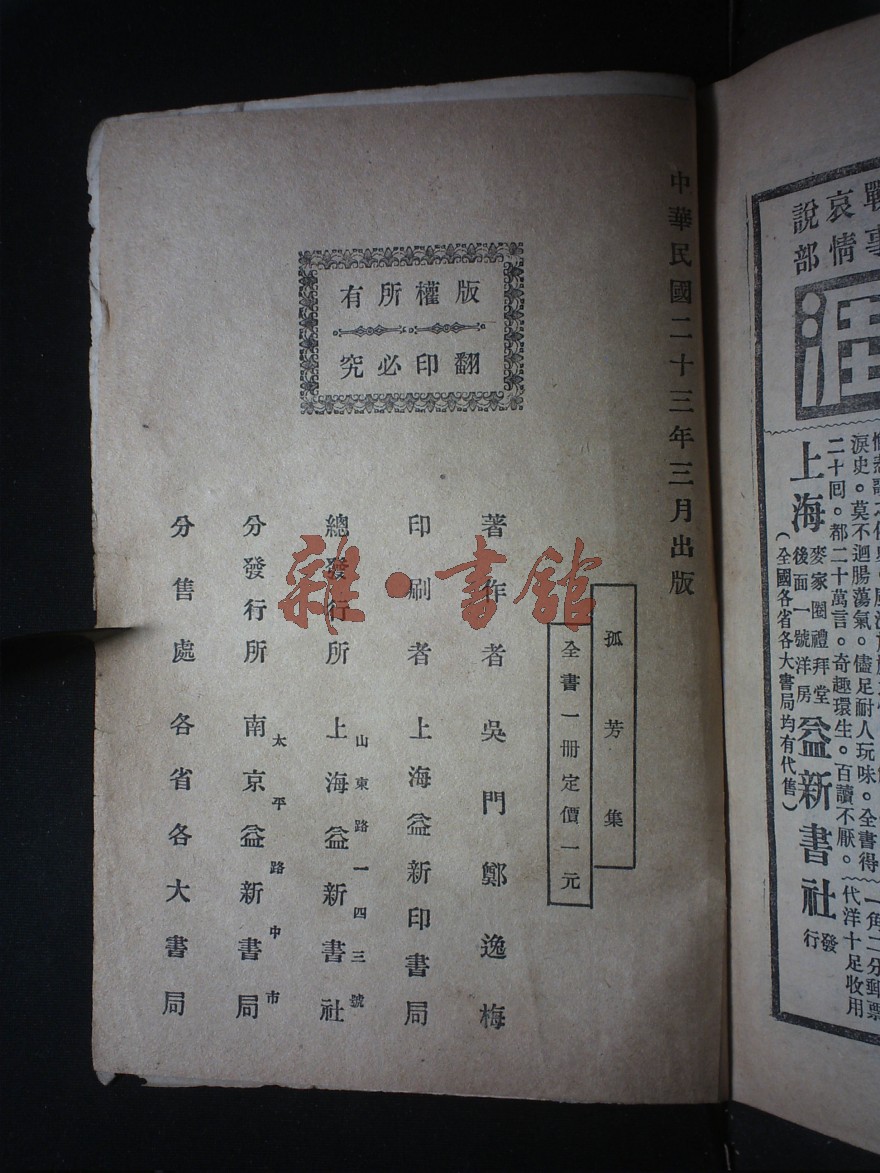 中華民國二十三年三月出版
版權所有
翻印必究
孤芳集
全書一冊定價一元
著作者吳門鄭逸梅
印刷者上海益新印書局
總發行所上海益新書社
山東路一四三號
分發行所南京益新書局
太平路中市
分售處各省各大書局
雜·書館
哀情
說部
淚史。莫不迴腸蕩氣。儘足耐人玩味。全書得
二十回。都二十萬言。奇趣環生。百讀不厭。
上海
麥家圈禮拜堂
後面一號洋房
益新書社
發行
(全國各省各大書局均有代售)
一角二分郵票
代洋十足收用